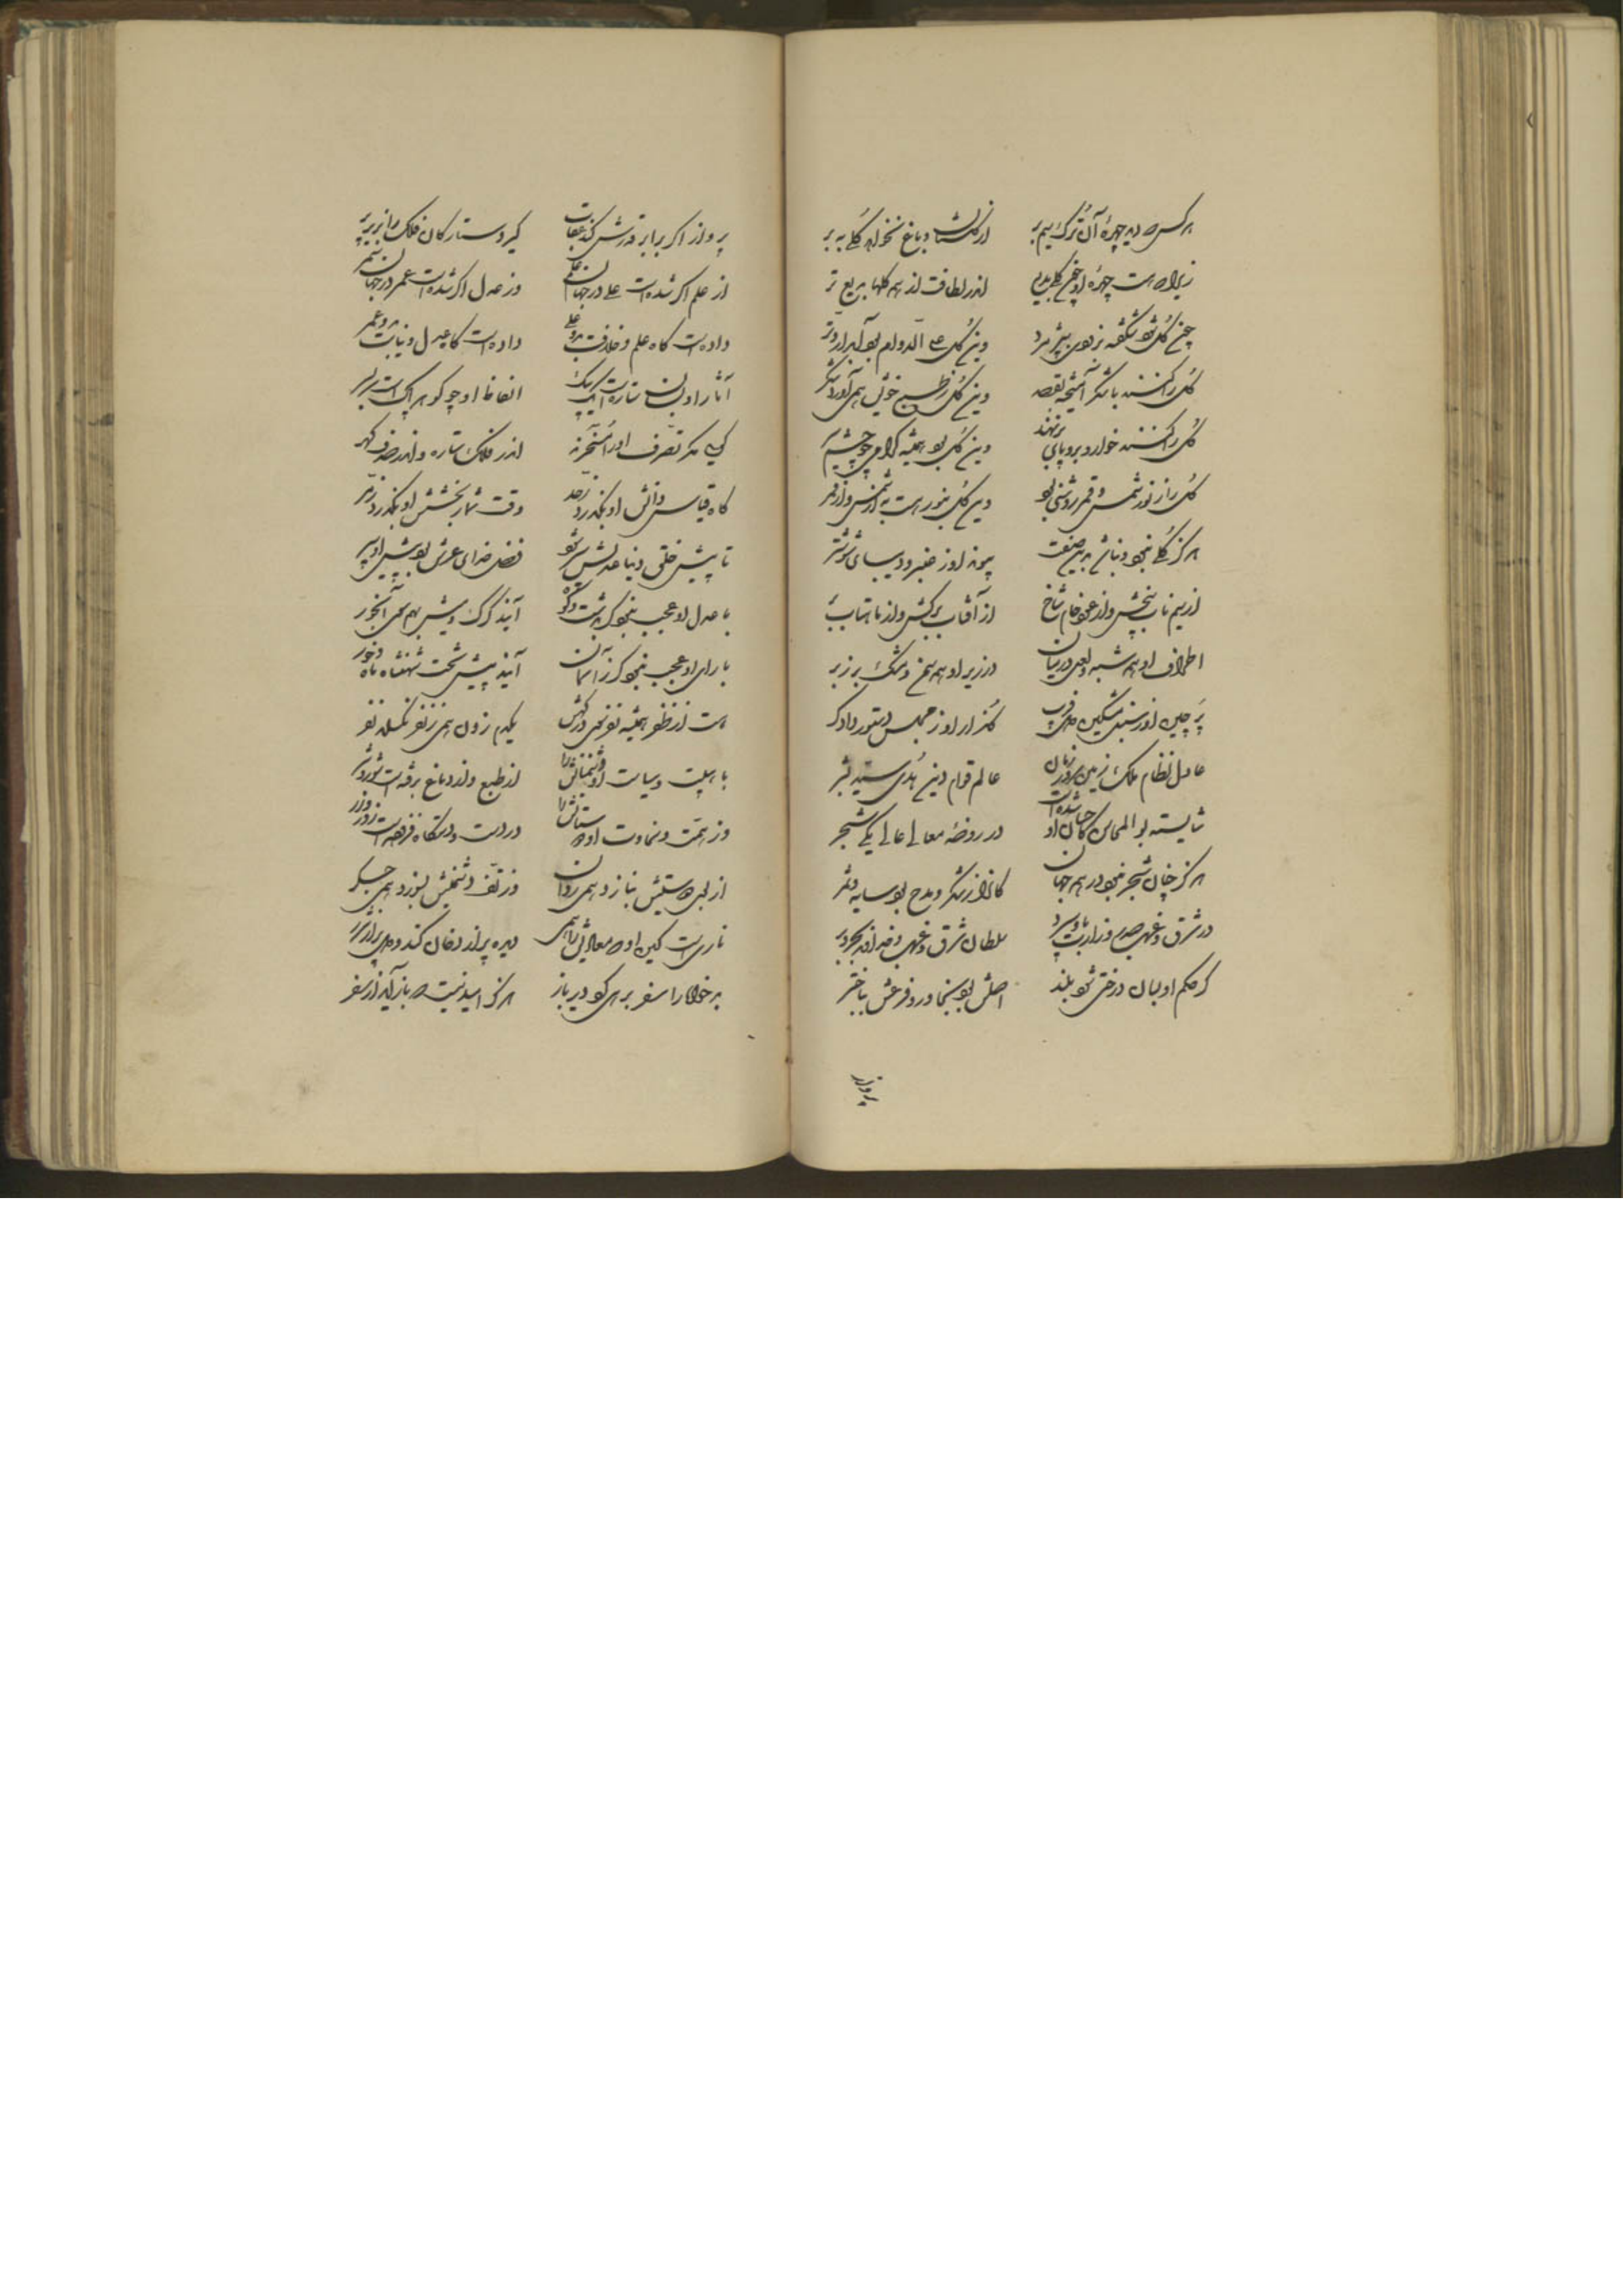 هر کس که دید چهرهٔ آن ترک سیم بر از گلستان و باغ نخواهد گلی به بر
زیرا که هست چهرهٔ او چون گلی بدیع اندر لطافت از همه گلها بدیع تر
چون گل شود شکفته نزدون بپژمرد وین گل علی الدوام بود آبدار و تر
گل را کنند با شکر آمیخته بقصد وین گل ز طبع خویش همی آورد شکر
گل را کنند خوار و برو پای بر نهند وین گل بود همیشه گرامی چو چشم سر
گل را ز نور شمس و قمر روشنی بود وین گل بنور هست به از شمس و از قمر
هرگز گلی نبود و نباشد بدین صفت از عنبر و دیبای شوشتر
از سیم ناب بیخش و از عود خام شاخ از آفتاب برگش و از ماهتاب بر
اطراف او همه شبه و لعل در میان در زیر او همه سمن و مشک بر زبر
پر چین او ز سنبل مشکین گلزار او ز مجلس دستور دادگر
عادل نظام ملک زمین زمان عالم قوام دین هدی سید بشر
شایسته بوالمحاسن کان او در روضهٔ معالی عالی یکی شجر
هرگز چنان شجر نبود در همه جهان کانرا ز شکر و مدح بود سایه و ثمر
در شرق و غرب صدر وزارت بدو سپرد سلطان شرق و غرب خداوند بحر و بر
گر حکم او بسان درختی شود بلند اصلش بود بنیمـاور و فرعش بباختر
پرواز
پرواز اگر برابر قدرش کند عقاب گیرد ستارگان فلک را بزیر پر
از علم اگر شده است علی در جهان علم وز عدل اگر شده است عمر در جهان سمر
داده است گاه علم و خلافت بدو علی داده است گاه عدل و نیابت بدو عمر
آثار او بسان ستاره است یک بیک الفاظ او چو گوهر پاک است سر بسر
گویی مگر تصرف او را مسخرند اندر فلک ستاره و اندر صدف گهر
گاه قیاس دانش او بگذرد ز حد وقت شمار بخشش او بگذرد ز مر
تا پیش خلق دنیا عدلش سپر شود فضل خدای عرش بود پیش او سپر
با عدل او عجب نبود گر بدشت و کوه آیند گرگ و میش بهم سوی آبخور
با رای او عجب نبود کز آسمان آیند پیش تخت شهنشاه ماه و خور
هست از ظفر همیشه نفر درگهش یکدم زدن همی ز نفر نگسلد نفر
با هیبت و سیاست او دشمنانش را از طبع و از دماغ برفته است شور و شر
وز همت و سخاوت او دوستانش را در دست و دستگاه فزوده است زور و زر
از لحن دوستیش بنازد همی روان وز تف دشمنیش بسوزد همی جگر
ناری است کین او که معادیش را همی دیده پر از دخان کند و دل پر از شرر
بدخواه را سفر برهی کو دیر باز هرگز امید نیست که باز آید از سفر